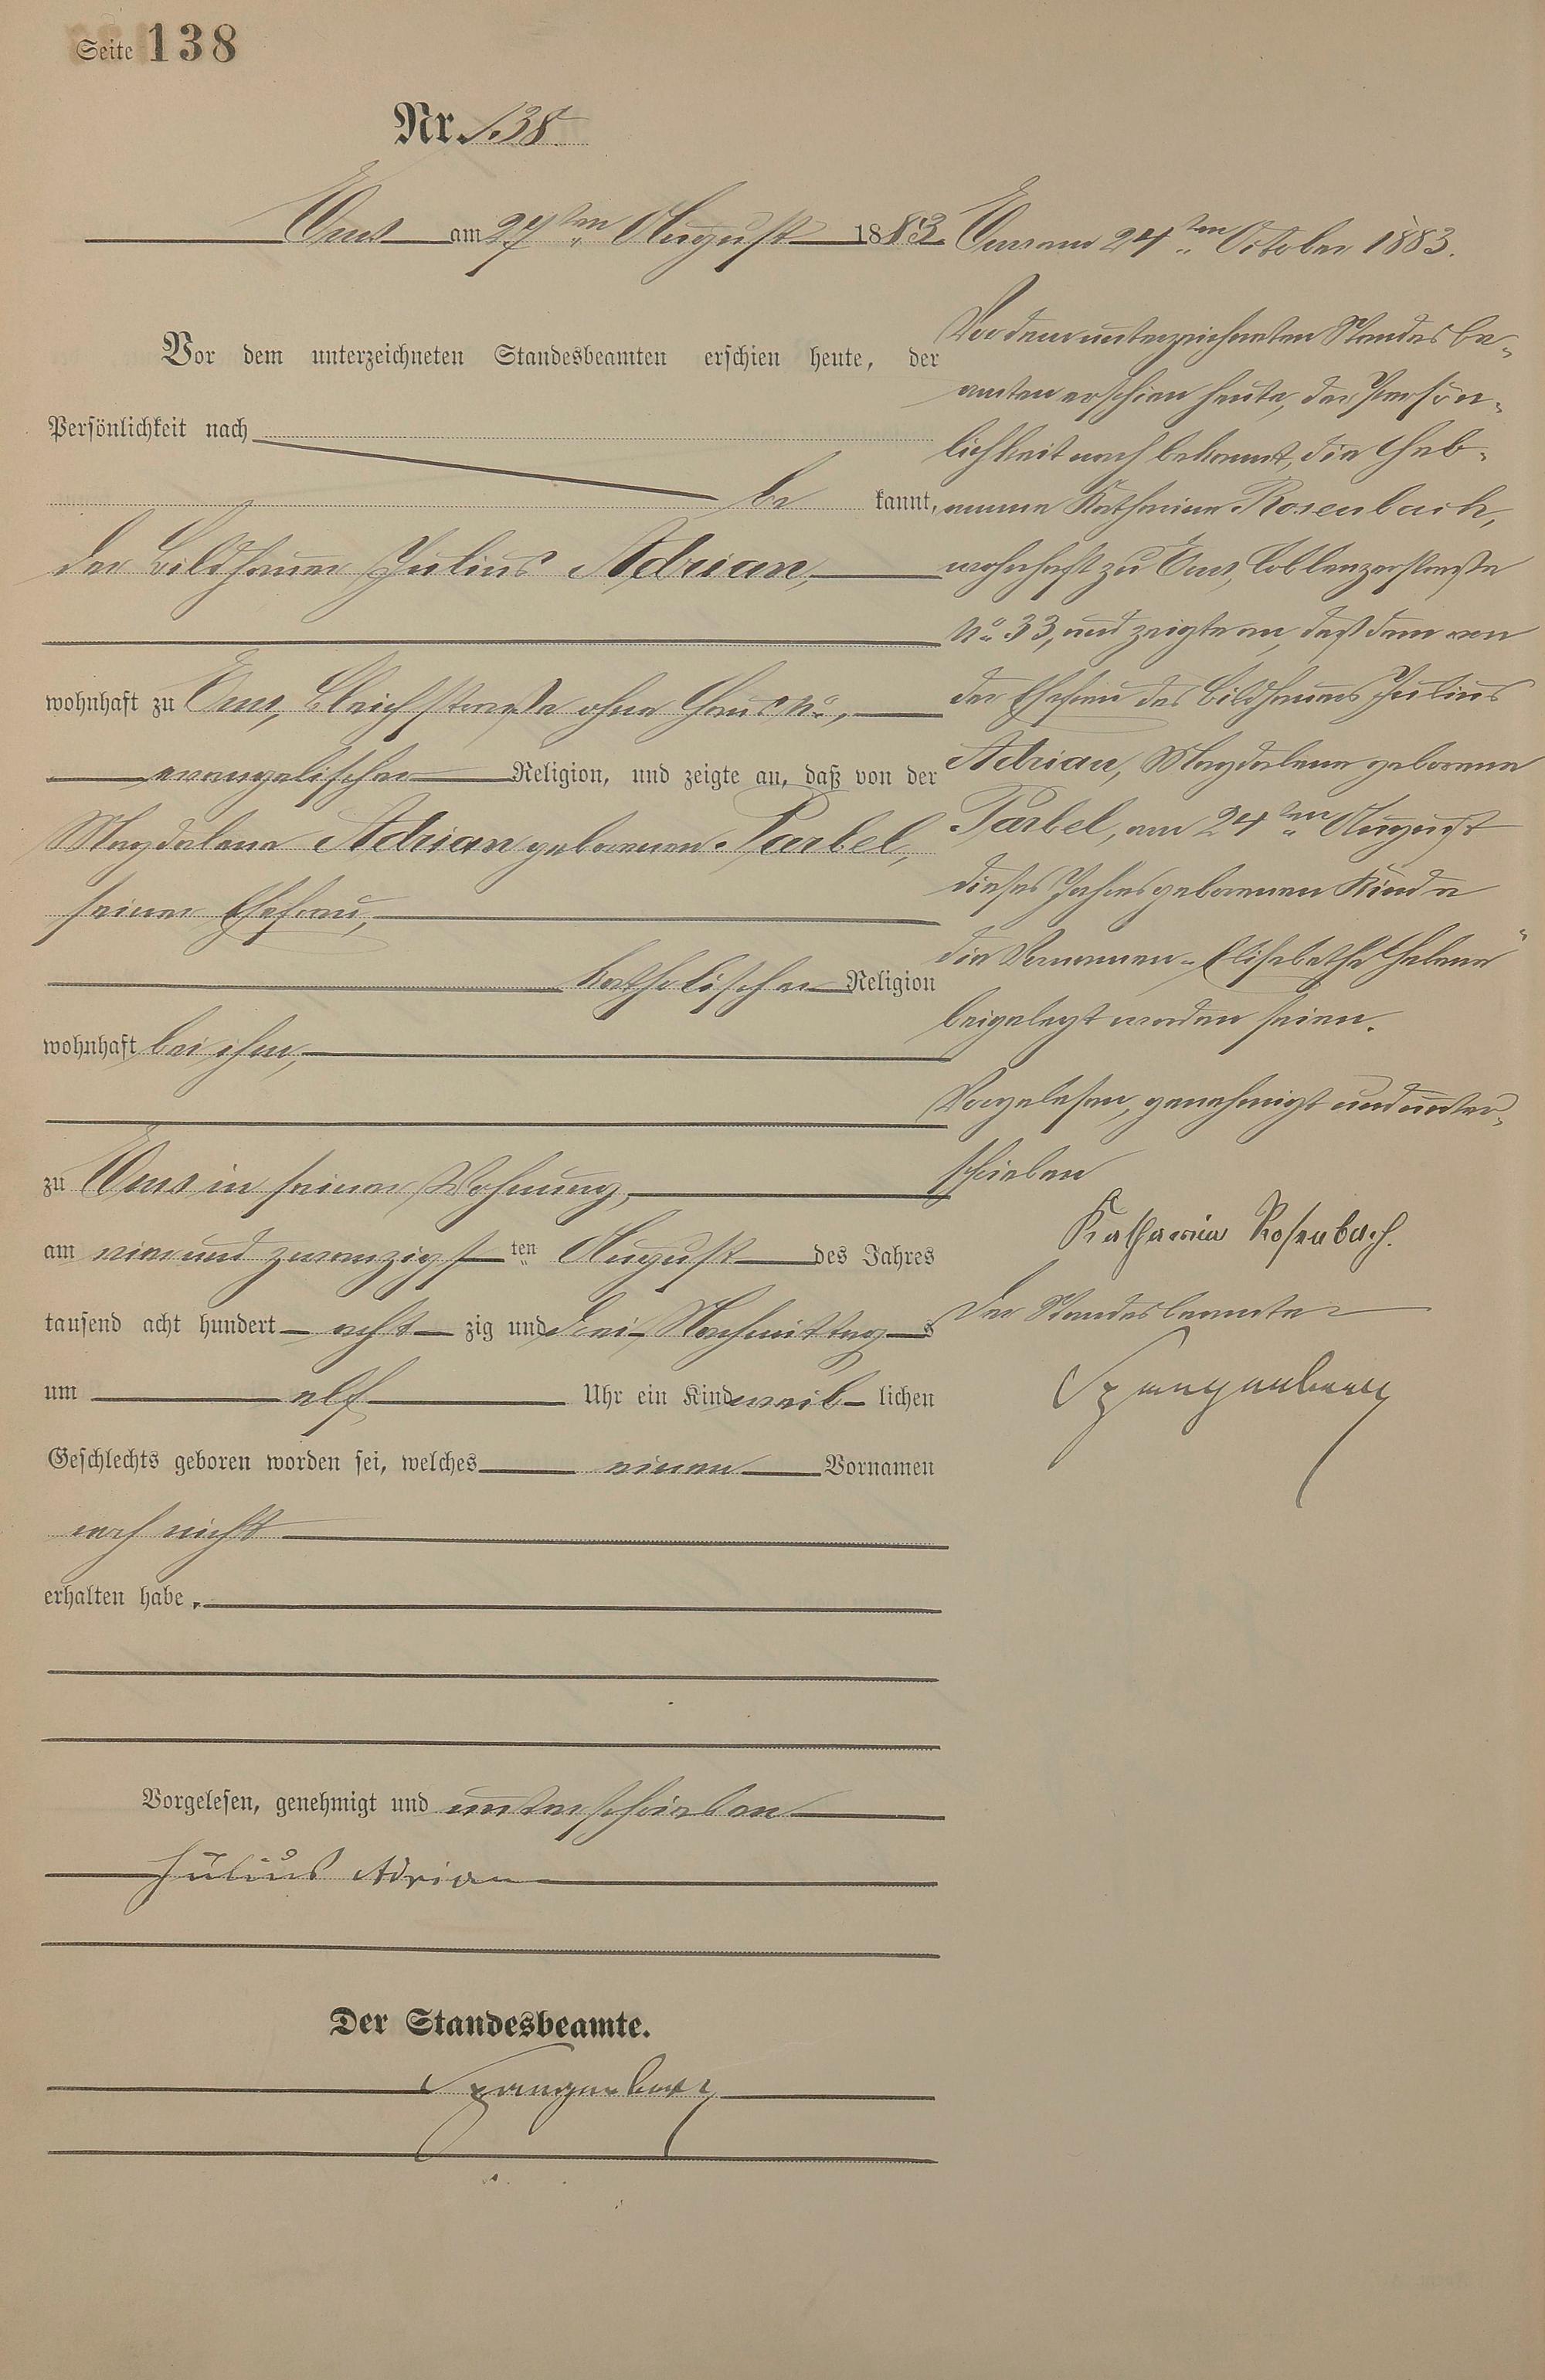 Seite 138
Nr. 138.
Ems am 27ten August 1883.
Vor dem unterzeichneten Standesbeamten erschien heute, der
Persönlichkeit nach
be kannt,
der Bildhauer Julius Adrian,
wohnhaft zu Ems, Bleichstraße ohne Haus No.,
evangelischer Religion, und zeigte an, daß von der
Magdalena Adrian geborenen Parbel,
seiner Ehefrau,
katholischer Religion
wohnhaft bei ihm,
zu Ems in seiner Wohnung,
am vierundzwanzigsten August des Jahres
tausend acht hundert acht zig und drei, Nachmittags
um elf Uhr ein Kind weib lichen
Geschlechts geboren worden sei, welches einen Vornamen
noch nicht
erhalten habe.
Vorgelesen, genehmigt und unterschrieben
Julius Adrian
Der Standesbeamte.
Spangenberg
Ems am 24ten October 1883.
Vor dem unterzeichneten Standesbe-
amten erschien heute, der Persön-
lichkeit nach bekannt, die Heb-
amme Katharina Rosenbach,
wohnhaft zu Ems, Coblenzerstraße
No. 33, und zeigte an, daß dem von
der Ehefrau des Bildhauers Julius
Adrian, Magdalena geborenen
Parbel, am 24ten August
dieses Jahres geborenen Kinde
die Vornamen „Elisabetha Helena"
beigelegt worden seien.
Vorgelesen, genehmigt und unter-
schrieben
Katharina Rosenbach.
Der Standesbeamte
Spangenberg